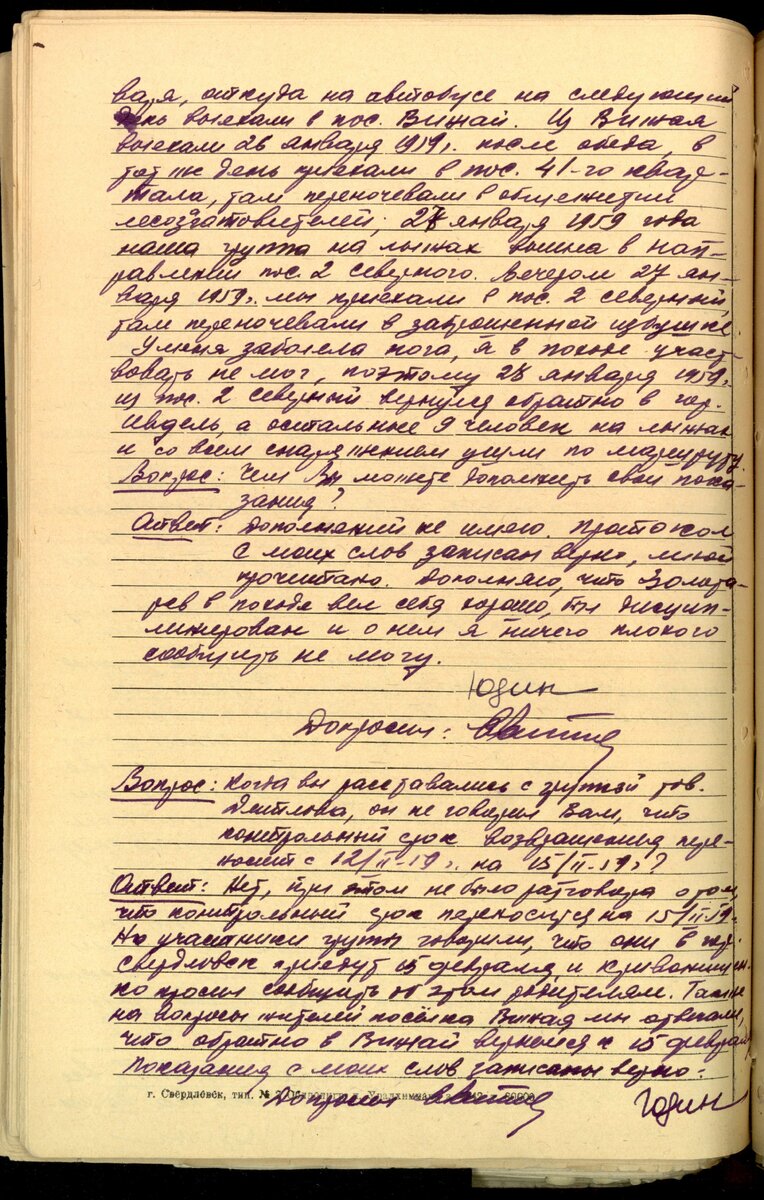 варя, откуда на автобусе на следующий
день выехали в пос. Вижай. Из Вижая
выехали 26 января 1959г. после обеда, в
тот же день приехали в пос. 41-го квар-
тала, там переночевали в общежитии
лесозаготовителей; 27 января 1959 года
наша группа на лыжах вышла в нап-
равлении пос. 2 северного. Вечером 27 ян-
варя 1959г. мы приехали в пос. 2 северный,
там переночевали в заброшенной избушке.
У меня заболела нога, я в походе участ-
вовать не мог, поэтому 28 января 1959г.
из пос. 2 северный вернулся обратно в гор.
Ивдель, а остальные 9 человек на лыжах
и со всем снаряжением ушли по маршруту.
Вопрос: Чем Вы можете дополнить свои пока-
зания?
Ответ: Дополнений не имею. Протокол
с моих слов записан верно, мной
прочитано. Дополняю, что Золота-
рев в походе вел себя хорошо, был дисцип-
линирован и о нем я ничего плохого
сообщить не могу.
Юдин
Допросил:
Вопрос: Когда вы расставались с группой тов.
Дятлова, он не говорил Вам, что
контрольный срок возвращения пере-
носит с 12/II-59г. на 15/II-59г?
Ответ: Нет, при этом не было разговора о том,
что контрольный срок переносится на 15/II-59г.
Но участники группы говорили, что они в гор.
Свердловск приедут 15 февраля и
просил сообщить об этом родителям. Также
на вопросы жителей посёлка Вижая мы отвечали,
что обратно в Вижай вернемся к 15 февраля
Показания с моих слов записаны верно:
Допросил Юдин
г. Свердловск, тип. №